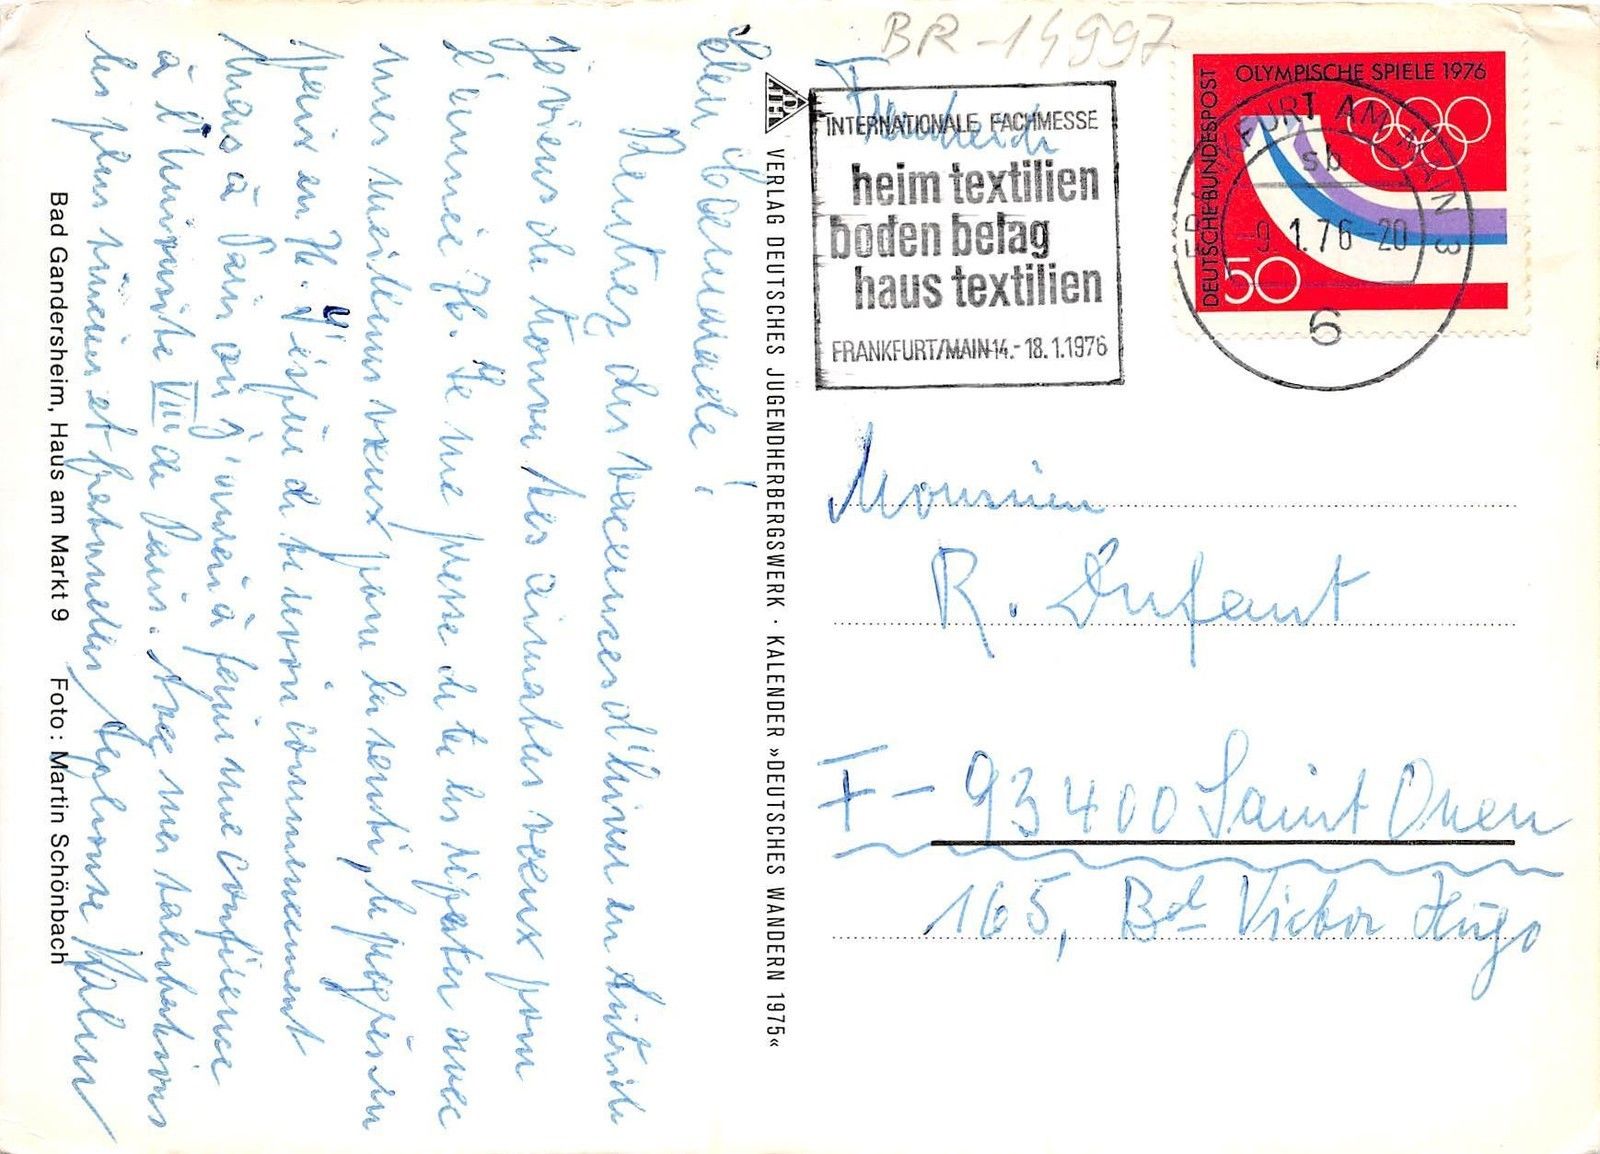 BR-14997
INTERNATIONALE FACHMESSE
heim textilien
boden belag
haus textilien
FRANKFURT/MAIN 14.-18.1.1976
OLYMPISCHE SPIELE 1976
DEUTSCHE BUNDESPOST
50
FURT AM MAIN 3
sb
-9.1.76-20
6
Monsieur
R. Dufaut
F- 93400 Saint Ouen
165, Bd Victor Hugo
VERLAG DEUTSCHES JUGENDHERBERGSWERK · KALENDER »DEUTSCHES WANDERN 1975«
Cher Camarade!
Rentrez des vacances d'hiver en Autriche
je viens de trouver tes aimables vœux pour
l'année 76. Je me presse de te les répéter avec
mes meilleurs vœux pour la santé, le progrès en
paix en
J'éspère de te revoir connumment
mais à Paris où j'aurai à faire une conférence
à l'Université VIII de Paris. Avec mes salutations
les plus sincères et fraternelles
Bad Gandersheim, Haus am Markt 9 Foto: Martin Schönbach